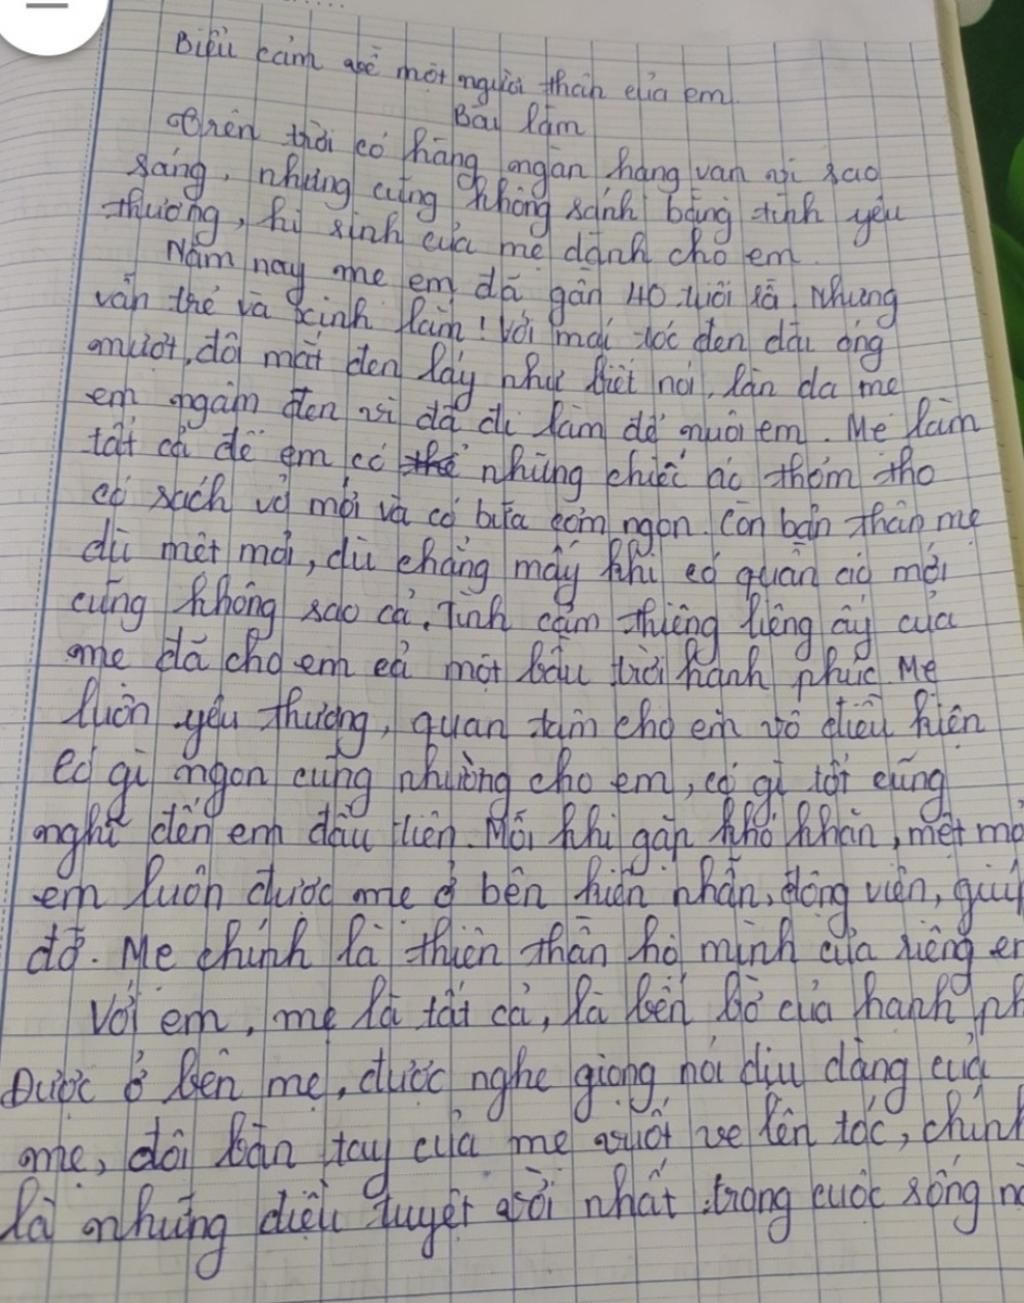 Biểu cảm về một người thân của em.
Bài làm
Trên trời có hàng ngàn hàng vạn vì sao
sáng, nhưng cũng không sánh bằng tình yêu
thương, hi sinh của mẹ dành cho em.
Năm nay mẹ em đã gần 40 tuổi rồi. Nhưng
vẫn trẻ và xinh lắm! Với mái tóc đen dài óng
mượt, đôi mắt đen láy như biết nói, làn da mẹ
em ngăm đen vì đã đi làm để nuôi em. Mẹ làm
tất cả để em có những chiếc áo thơm tho
có sách vở mới và có bữa cơm ngon. Còn bản thân mẹ
dù mệt mỏi, dù chẳng mấy khi có quần áo mới
cũng không sao cả. Tình cảm thiêng liêng ấy của
mẹ đã cho em cả một bầu trời hạnh phúc. Mẹ
luôn yêu thương, quan tâm cho em vô điều kiện
có gì ngon cũng nhường cho em, có gì tốt cũng
nghĩ đến em đầu tiên. Mỗi khi gặp khó khăn, mệt
em luôn được mẹ ở bên kiên nhẫn, động viên,
đỡ. Mẹ chính là thiên thần hộ mệnh của riêng
Với em, mẹ là tất cả, là bến bờ của hạnh
Được ở bên mẹ, được nghe giọng nói dịu dàng của
mẹ, đôi bàn tay của mẹ vuốt ve lên tóc, chính
là những điều tuyệt vời nhất trong cuộc sống